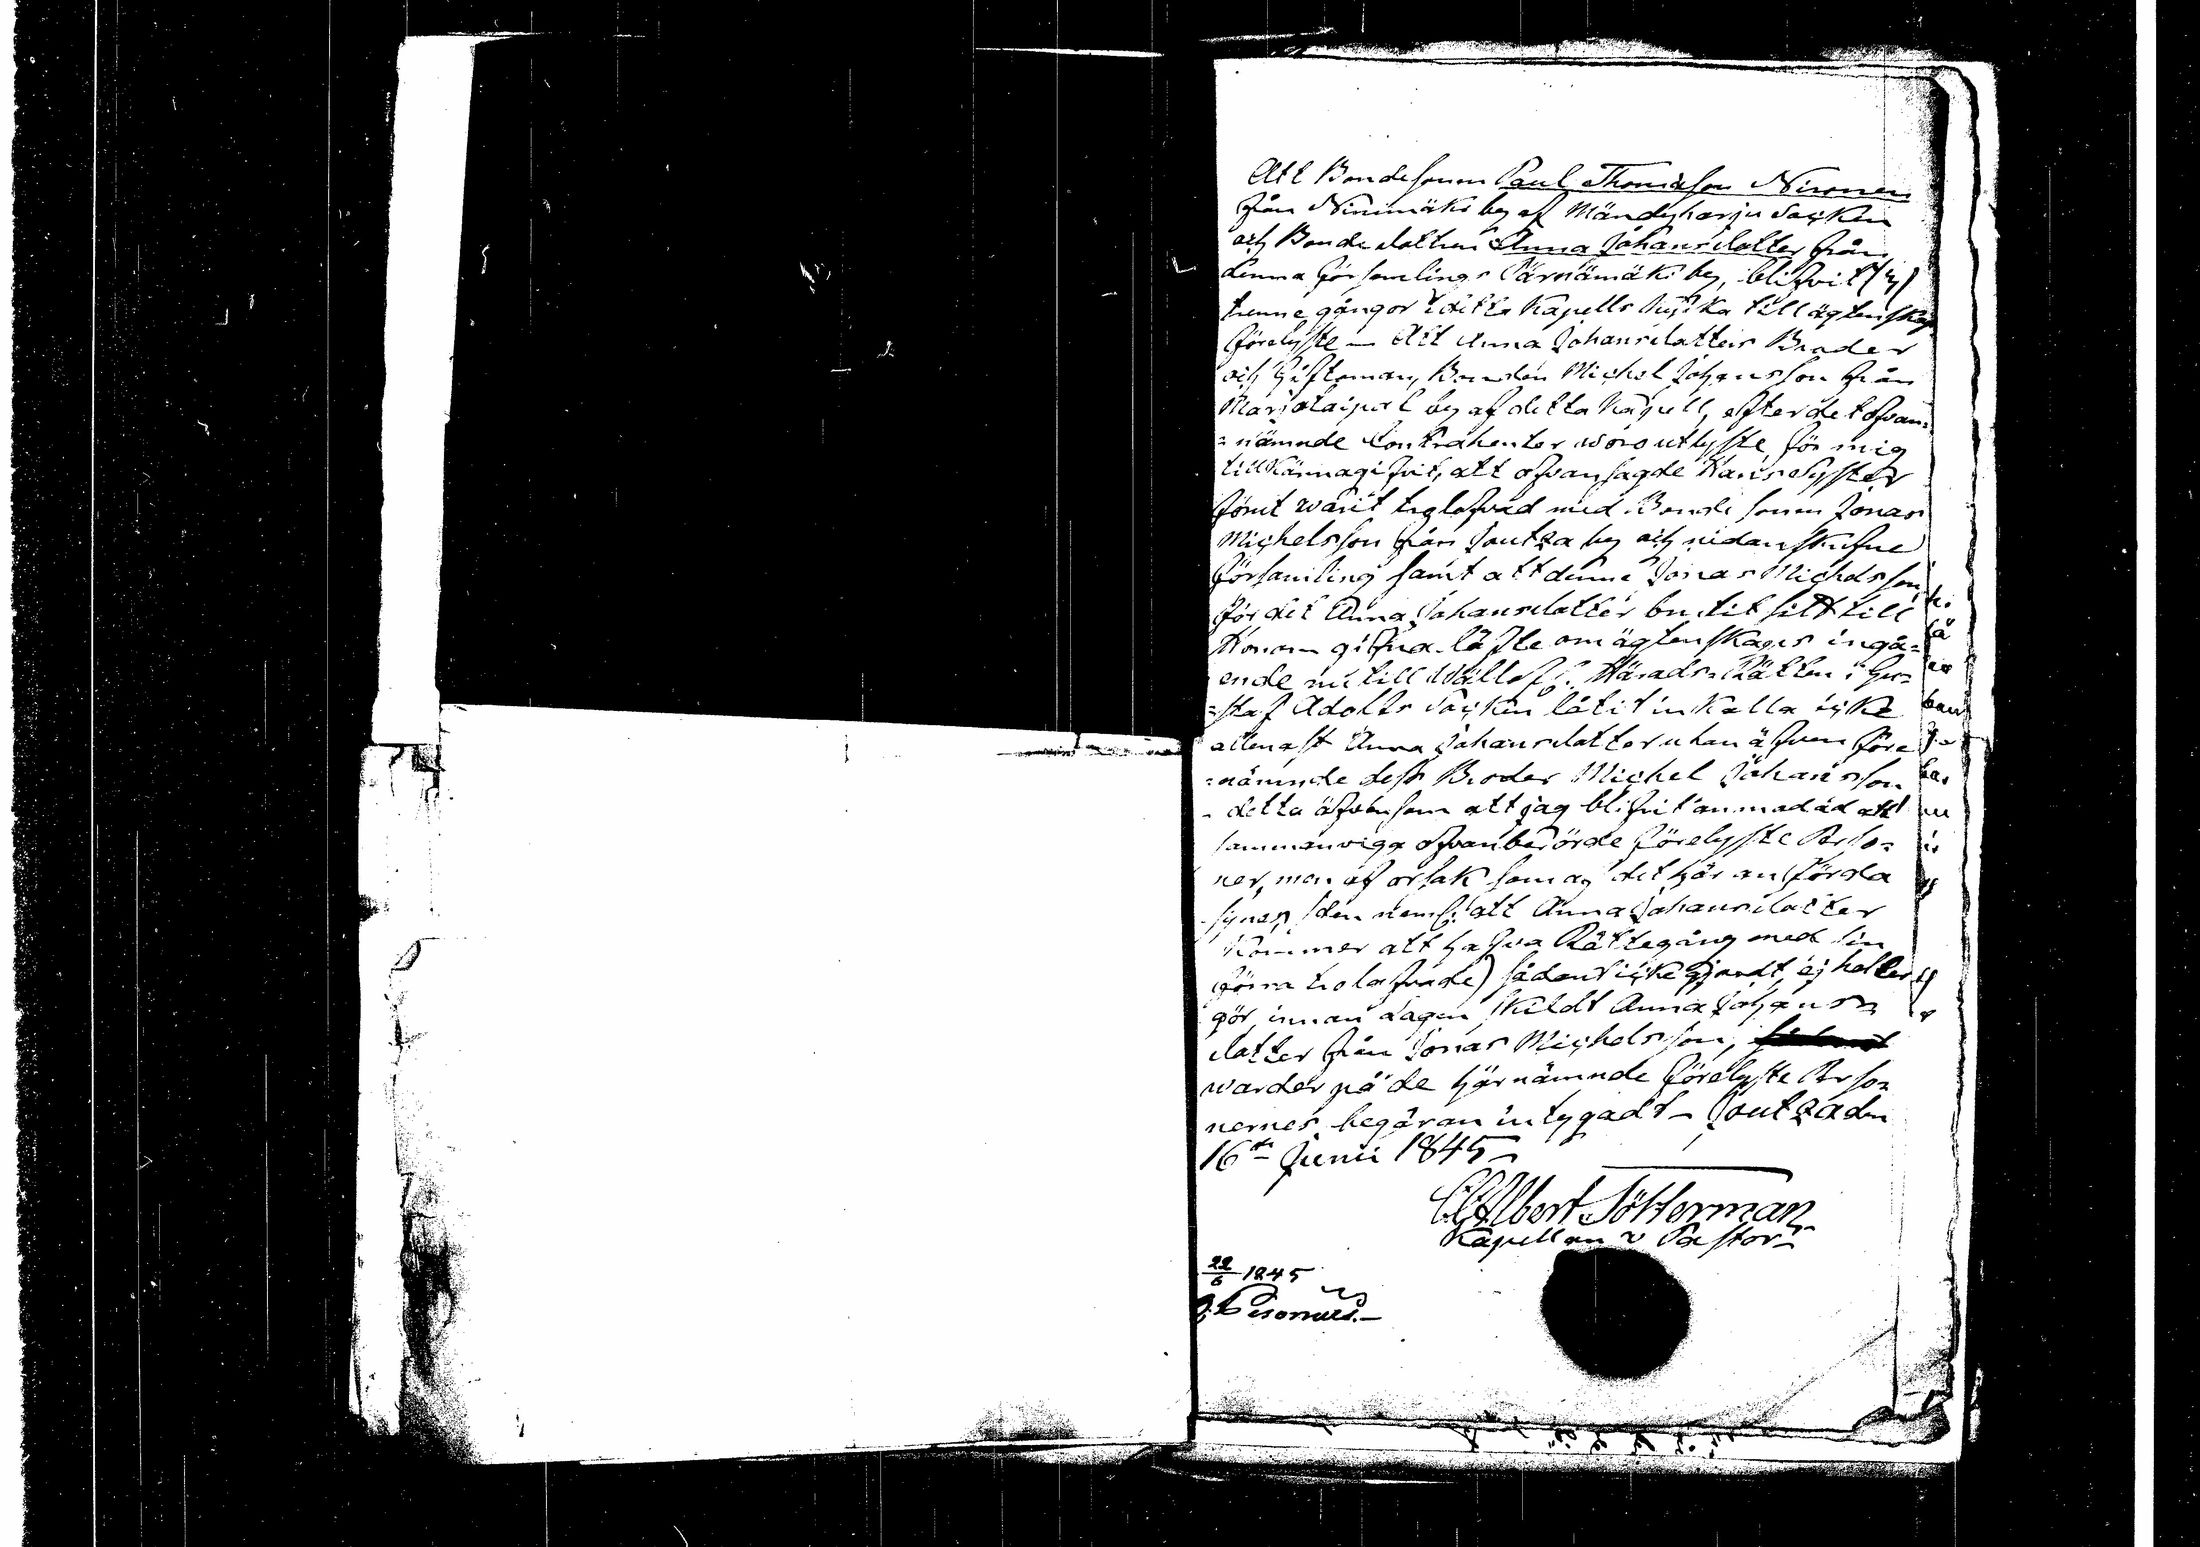 Att Bondesonen Paul Thomasson Nironen
från Niinimäki by af Mändyharju Socken
och Bondedottren Anna Johansdotter från
denna församlings Särnämäki by, blifvit
trenne gångor i detta Kapells Kyrka till ägtenskap
förelyste — Att Anna Johansdotters Broder
och Giftoman, Bonden Michel Johansson från
Marjotaipal by af detta Kapell, efter det ofvan-
=nämnde Contrahenter woro utlyste, för mig
tillkännagifvit, att ofvansagde Hans Syster
förut warit trolofvad med Bondesonen Jonas
Michelsson från Joutza by och nidanskrefne
församling samt att denne Jonas Michelsson
för det Anna Johansdotter brutit sitt till
Honom gifna löfte om ägtenskaps ingå=
ende nu till Wällofl. Härads-Rätten i Gu=
=staf Adolfs Socken låtit inkalla icke
allenast Anna Johansdotter utan äfven före
=nämnde dess Broder Michel Johansson
- detta äfvensom att jag blifvit anmodad att
sammanviga ofvanberörde förelyste Perso=
ner, men af orsak som af det här anförda
synes, (den neml. att Anna Johansdotter
Kommer att hafva Rättegång med sin
förra trolofvade) sådant icke gjordt, ej heller
gör, innan Lagen skildt Anna Johans=
dotter från Jonas Michelsson,
warder på de härnämnde förelyste Perso=
nernes begäran intygadt — Joutza den
16de Junii 1845
Albert Sötterman
Kapellan v Pastor
22/6 1845